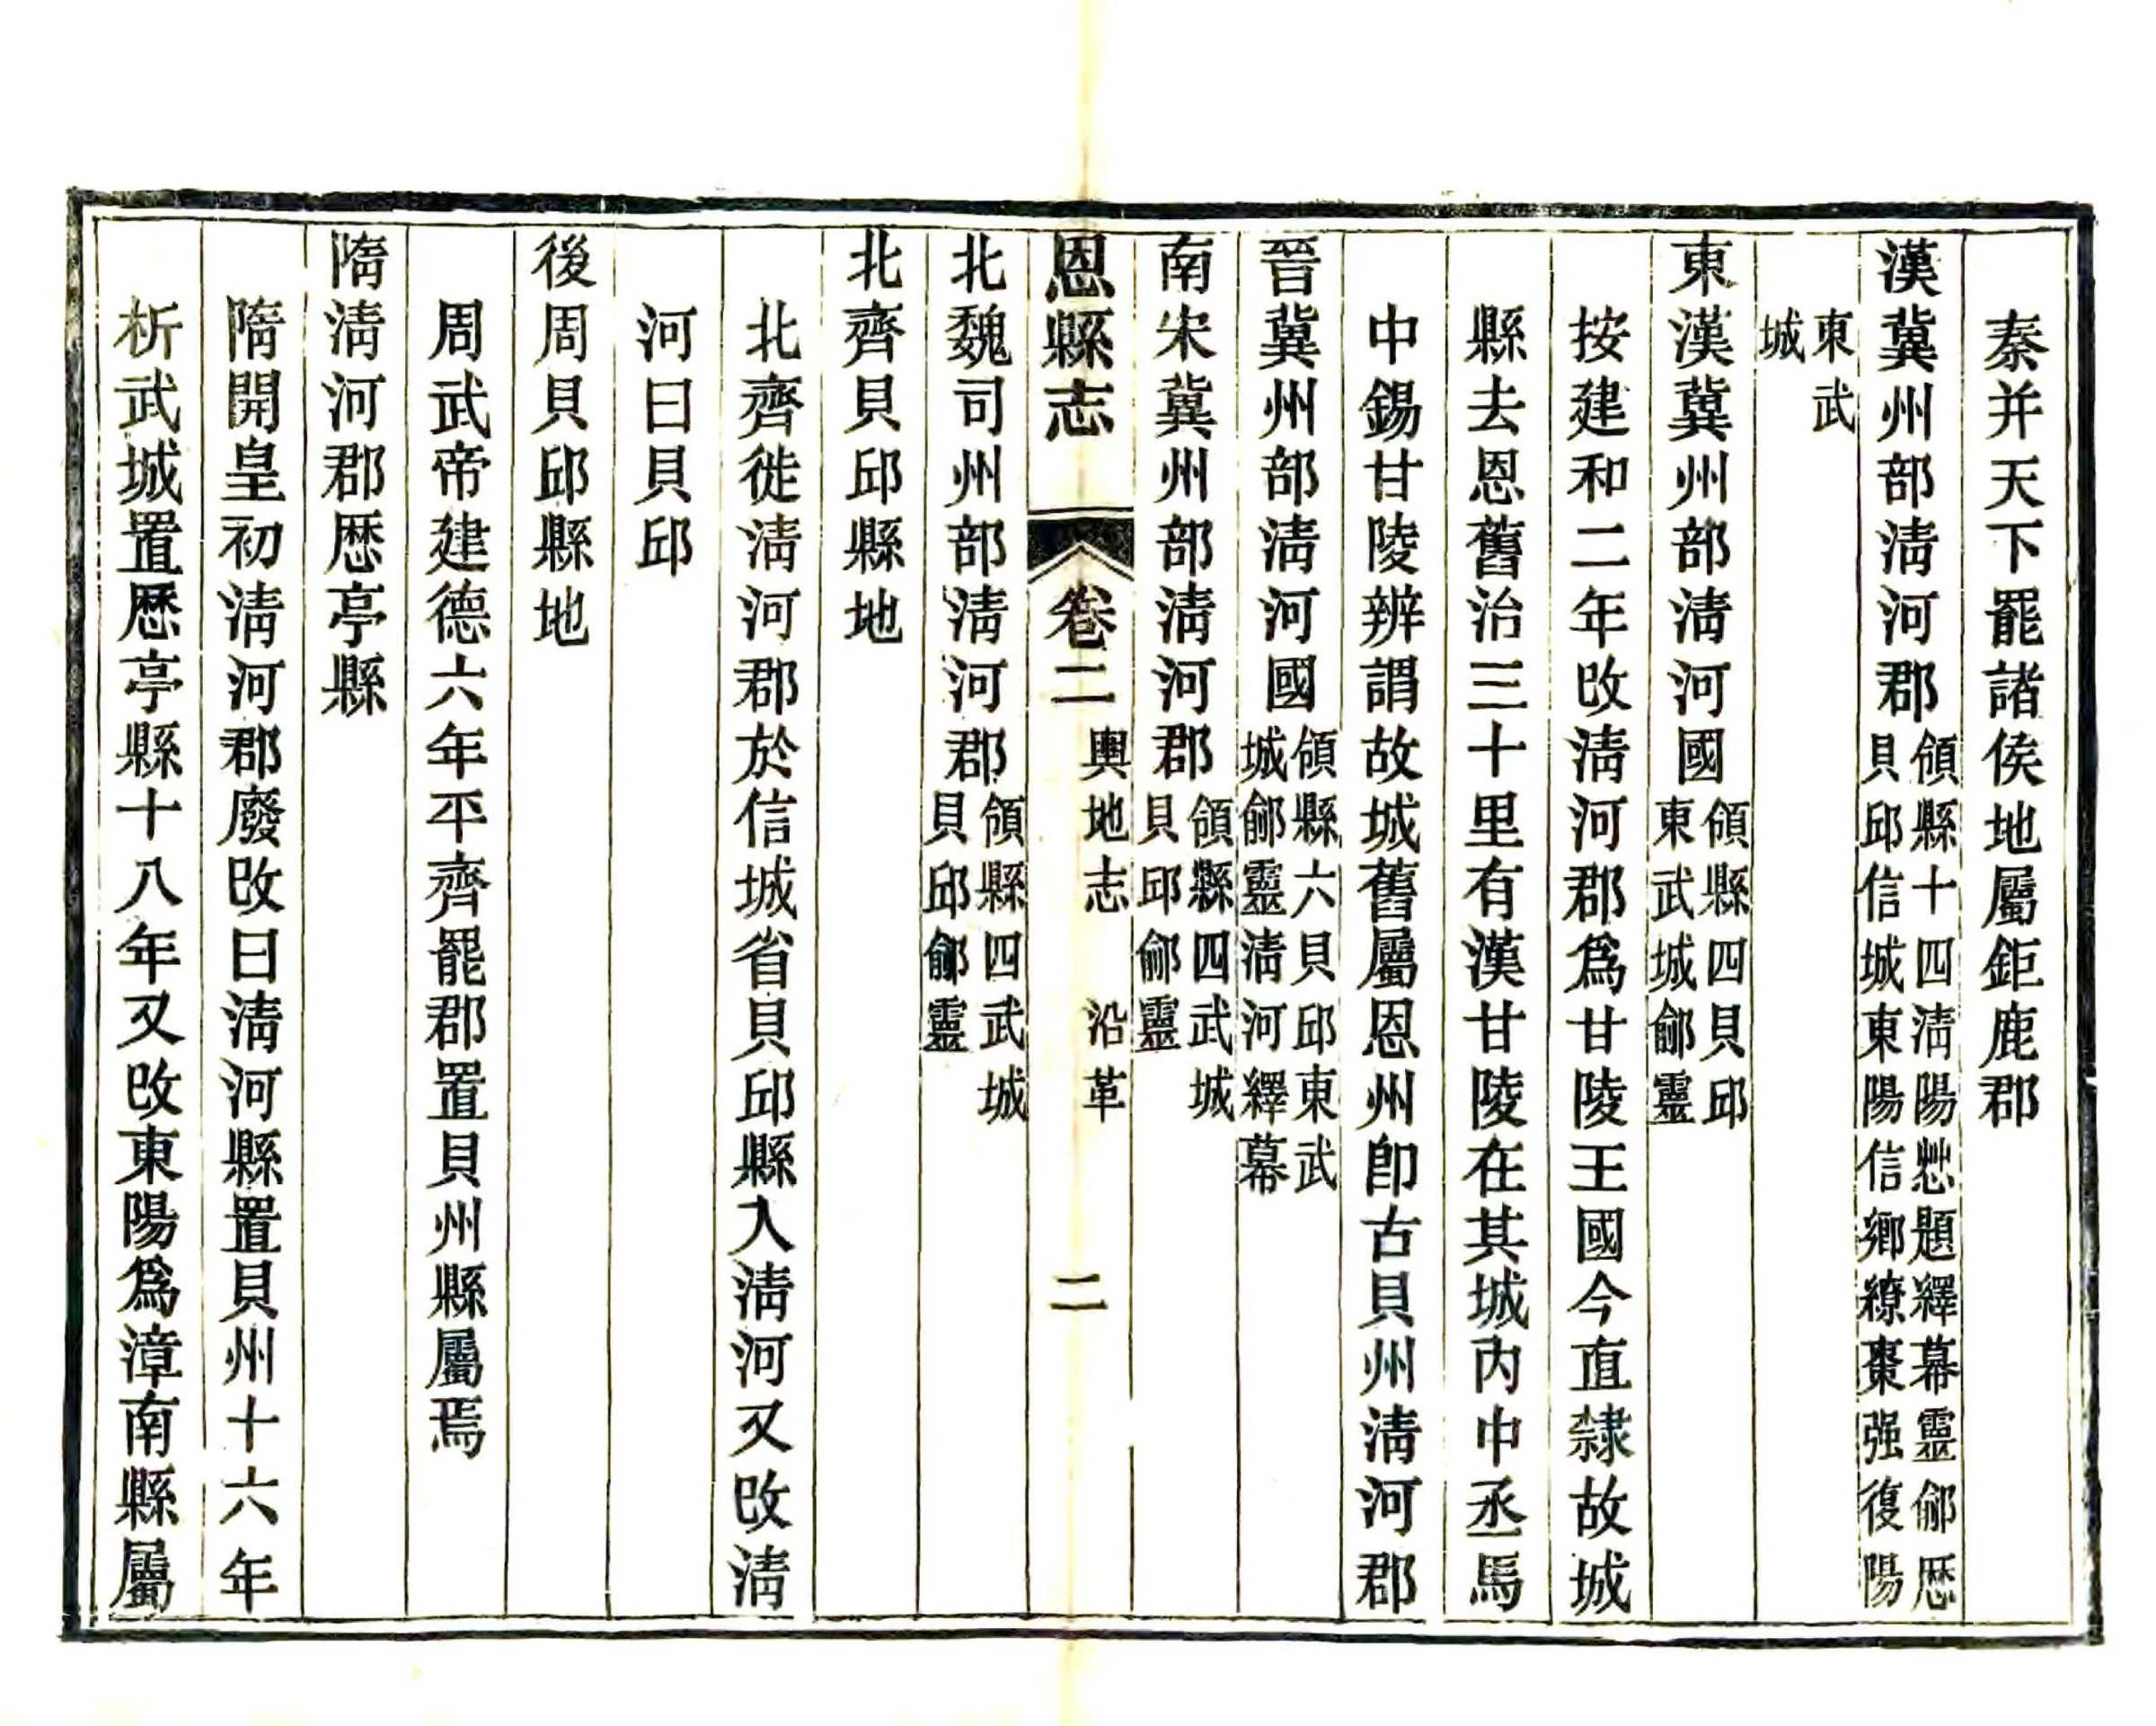 秦并天下罷諸侯地屬鉅鹿郡
漢冀州部淸河郡
領縣十四淸陽惢題繹幕靈鄃歴
貝邱信城東陽信鄉繚棗强復陽
東武
城
東漢冀州部淸河國
領縣四貝邱
東武城鄃靈
按建和二年改淸河郡爲甘陵王國今直隷故城
縣去恩舊治三十里有漢甘陵在其城内中丞馬
中錫甘陵辨謂故城舊屬恩州卽古貝州淸河郡
晉冀州部淸河國
領縣六貝邱東武
城鄃靈淸河繹幕
南宋冀州部淸河郡
領縣四武城
貝邱鄃靈
恩縣志
卷二
輿地志 沿革
二
北魏司州部淸河郡
領縣四武城
貝邱鄃靈
北齊貝邱縣地
北齊徙淸河郡於信城省貝邱縣入淸河又改淸
河曰貝邱
後周貝邱縣地
周武帝建德六年平齊罷郡置貝州縣屬焉
隋淸河郡歴亭縣
隋開皇初淸河郡廢改曰淸河縣置貝州十六年
析武城置歴亭縣十八年又改東陽爲漳南縣屬